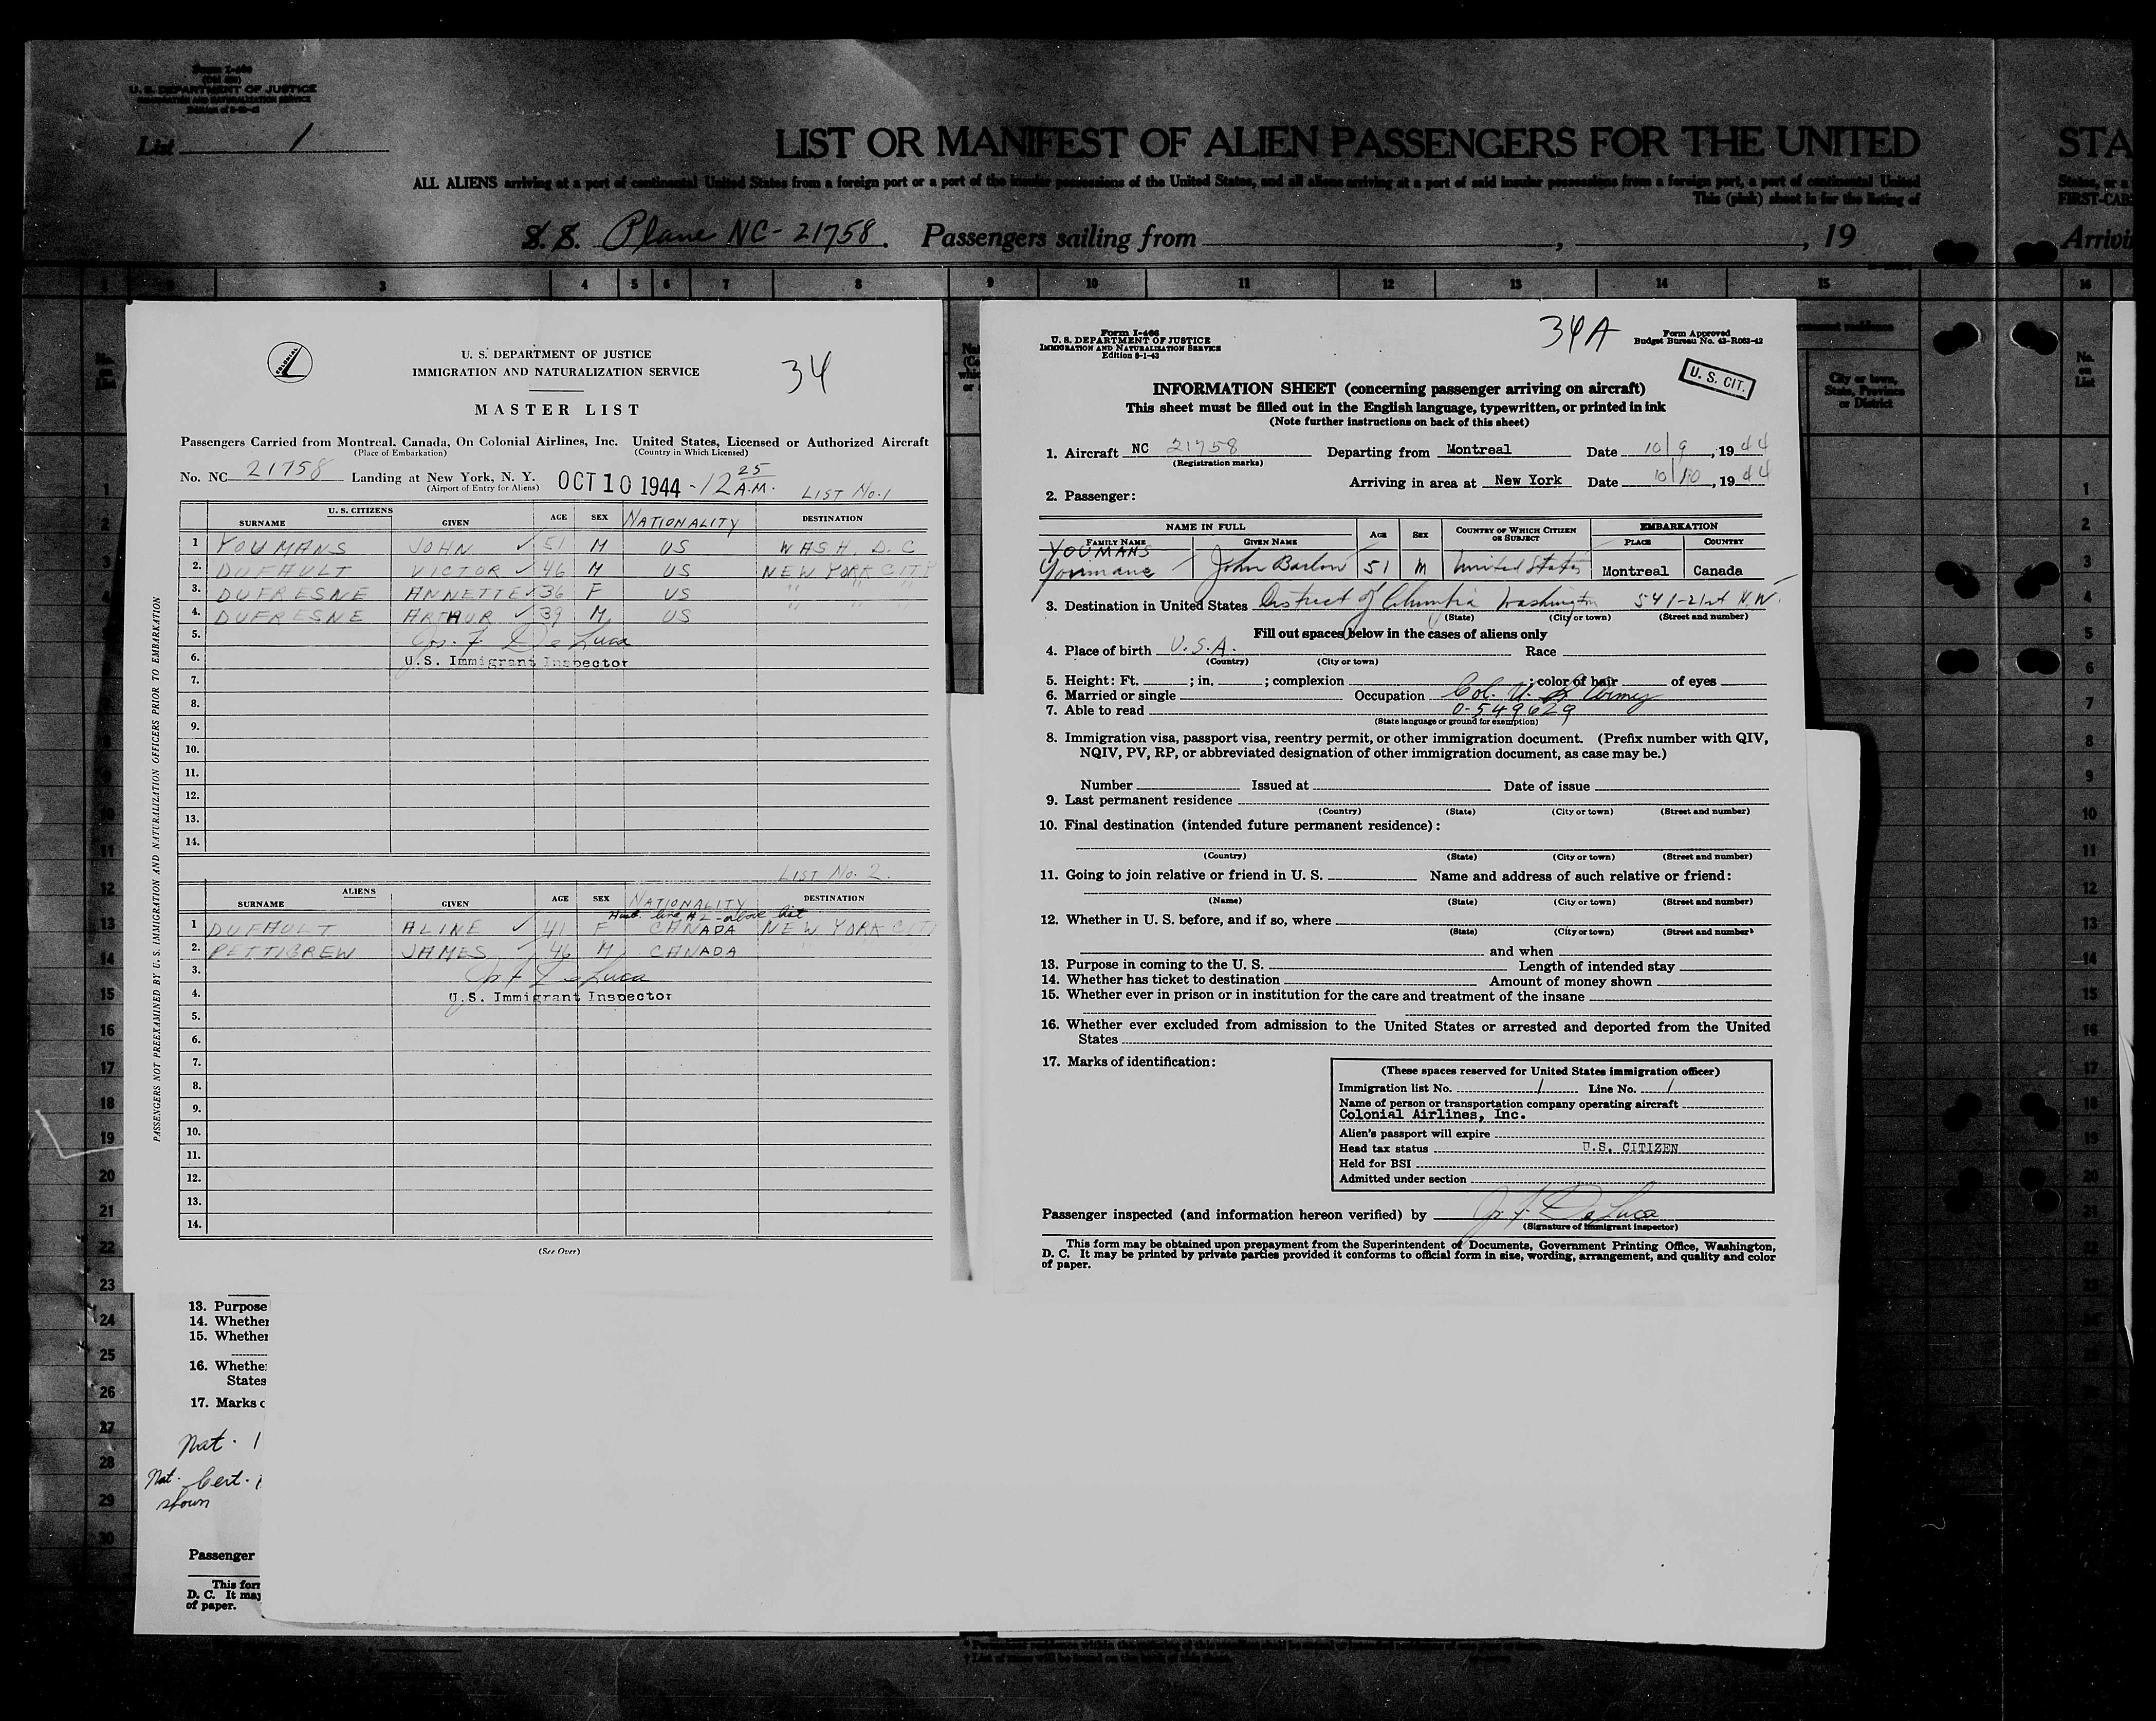 Form I-466
U. S. DEPARTMENT OF JUSTICE
IMMIGRATION AND NATURALIZATION SERVICE
List 1
LIST OR MANIFEST OF ALIEN PASSENGERS FOR THE UNITED
STA
ALL ALIENS arriving at a port of continental United States from a foreign port or a port of the insular possessions of the United States, and all aliens arriving at a port of said insular possessions from a foreign port, a port of continental United
States, or a
This (pink) sheet is for the listing of
FIRST-CAB
S. S. Plane NC-21758. Passengers sailing from , , 19
Arrivi
1 3 4 5 6 7 8 9 10 11 12 13 14 15 16
COLONIAL
U. S. DEPARTMENT OF JUSTICE
IMMIGRATION AND NATURALIZATION SERVICE
34
MASTER LIST
Passengers Carried from Montreal. Canada, On Colonial Airlines, Inc. United States, Licensed or Authorized Aircraft
(Place of Embarkation) (Country in Which Licensed)
No. NC 21758 Landing at New York, N. Y. OCT 10 1944 - 12 25 A.M.
(Airport of Entry for Aliens)
LIST No. 1
U. S. CITIZENS
SURNAME GIVEN AGE SEX NATIONALITY DESTINATION
1 YOUMANS JOHN ✓ 51 M US WASH. D.C
2. DUFAULT VICTOR ✓ 46 M US NEW YORK CITY
3. DUFRESNE ANNETTE ✓ 36 F US " " "
4. DUFRESNE ARTHUR ✓ 39 M US " " "
5. Jos. F. De Luca
6. U.S. Immigrant Inspector
7.
8.
9.
10.
11.
12.
13.
14.
LIST No. 2.
ALIENS
SURNAME GIVEN AGE SEX NATIONALITY DESTINATION
Husb. line #2 - above list
1 DUFAULT ALINE ✓ 41 F CANADA NEW YORK CITY
2. PETTIGREW JAMES 46 M CANADA "
3. Jos. F. De Luca
4. U.S. Immigrant Inspector
5.
6.
7.
8.
9.
10.
11.
12.
13.
14.
(See Over)
PASSENGERS NOT PREEXAMINED BY U. S. IMMIGRATION AND NATURALIZATION OFFICERS PRIOR TO EMBARKATION
Form I-466
U. S. DEPARTMENT OF JUSTICE
IMMIGRATION AND NATURALIZATION SERVICE
Edition 8-1-43
34A
Form Approved
Budget Bureau No. 43-R063-42
U. S. CIT.
INFORMATION SHEET (concerning passenger arriving on aircraft)
This sheet must be filled out in the English language, typewritten, or printed in ink
(Note further instructions on back of this sheet)
1. Aircraft NC 21758 Departing from Montreal Date 10/9, 1944
(Registration marks)
Arriving in area at New York Date 10/10, 1944
2. Passenger:
NAME IN FULL AGE SEX COUNTRY OF WHICH CITIZEN OR SUBJECT EMBARKATION
FAMILY NAME GIVEN NAME PLACE COUNTRY
YOUMANS
Youmans John Barlow 51 M United States Montreal Canada
3. Destination in United States District of Columbia Washington 541-21st N.W.
(State) (City or town) (Street and number)
Fill out spaces below in the cases of aliens only
4. Place of birth U.S.A. Race
(Country) (City or town)
5. Height: Ft. ; in. ; complexion ; color of hair of eyes
6. Married or single Occupation Col. U. S. Army
7. Able to read 0-549629
(State language or ground for exemption)
8. Immigration visa, passport visa, reentry permit, or other immigration document. (Prefix number with QIV,
NQIV, PV, RP, or abbreviated designation of other immigration document, as case may be.)
Number Issued at Date of issue
9. Last permanent residence
(Country) (State) (City or town) (Street and number)
10. Final destination (intended future permanent residence):
(Country) (State) (City or town) (Street and number)
11. Going to join relative or friend in U. S. Name and address of such relative or friend:
(Name) (State) (City or town) (Street and number)
12. Whether in U. S. before, and if so, where
(State) (City or town) (Street and number)
and when
13. Purpose in coming to the U. S. Length of intended stay
14. Whether has ticket to destination Amount of money shown
15. Whether ever in prison or in institution for the care and treatment of the insane
16. Whether ever excluded from admission to the United States or arrested and deported from the United
States
17. Marks of identification:
(These spaces reserved for United States immigration officer)
Immigration list No. 1 Line No. 1
Name of person or transportation company operating aircraft
Colonial Airlines, Inc.
Alien's passport will expire
Head tax status U.S. CITIZEN
Held for BSI
Admitted under section
Passenger inspected (and information hereon verified) by Jos. F. De Luca
(Signature of immigrant inspector)
This form may be obtained upon prepayment from the Superintendent of Documents, Government Printing Office, Washington,
D. C. It may be printed by private parties provided it conforms to official form in size, wording, arrangement, and quality and color
of paper.
City or town, State, Province or District
No. on List
13. Purpose
14. Whether
15. Whether
16. Whethe
States
17. Marks
Nat. 1
Nat. Cert.
shown
Passenger
This for
D. C. It may
of paper.